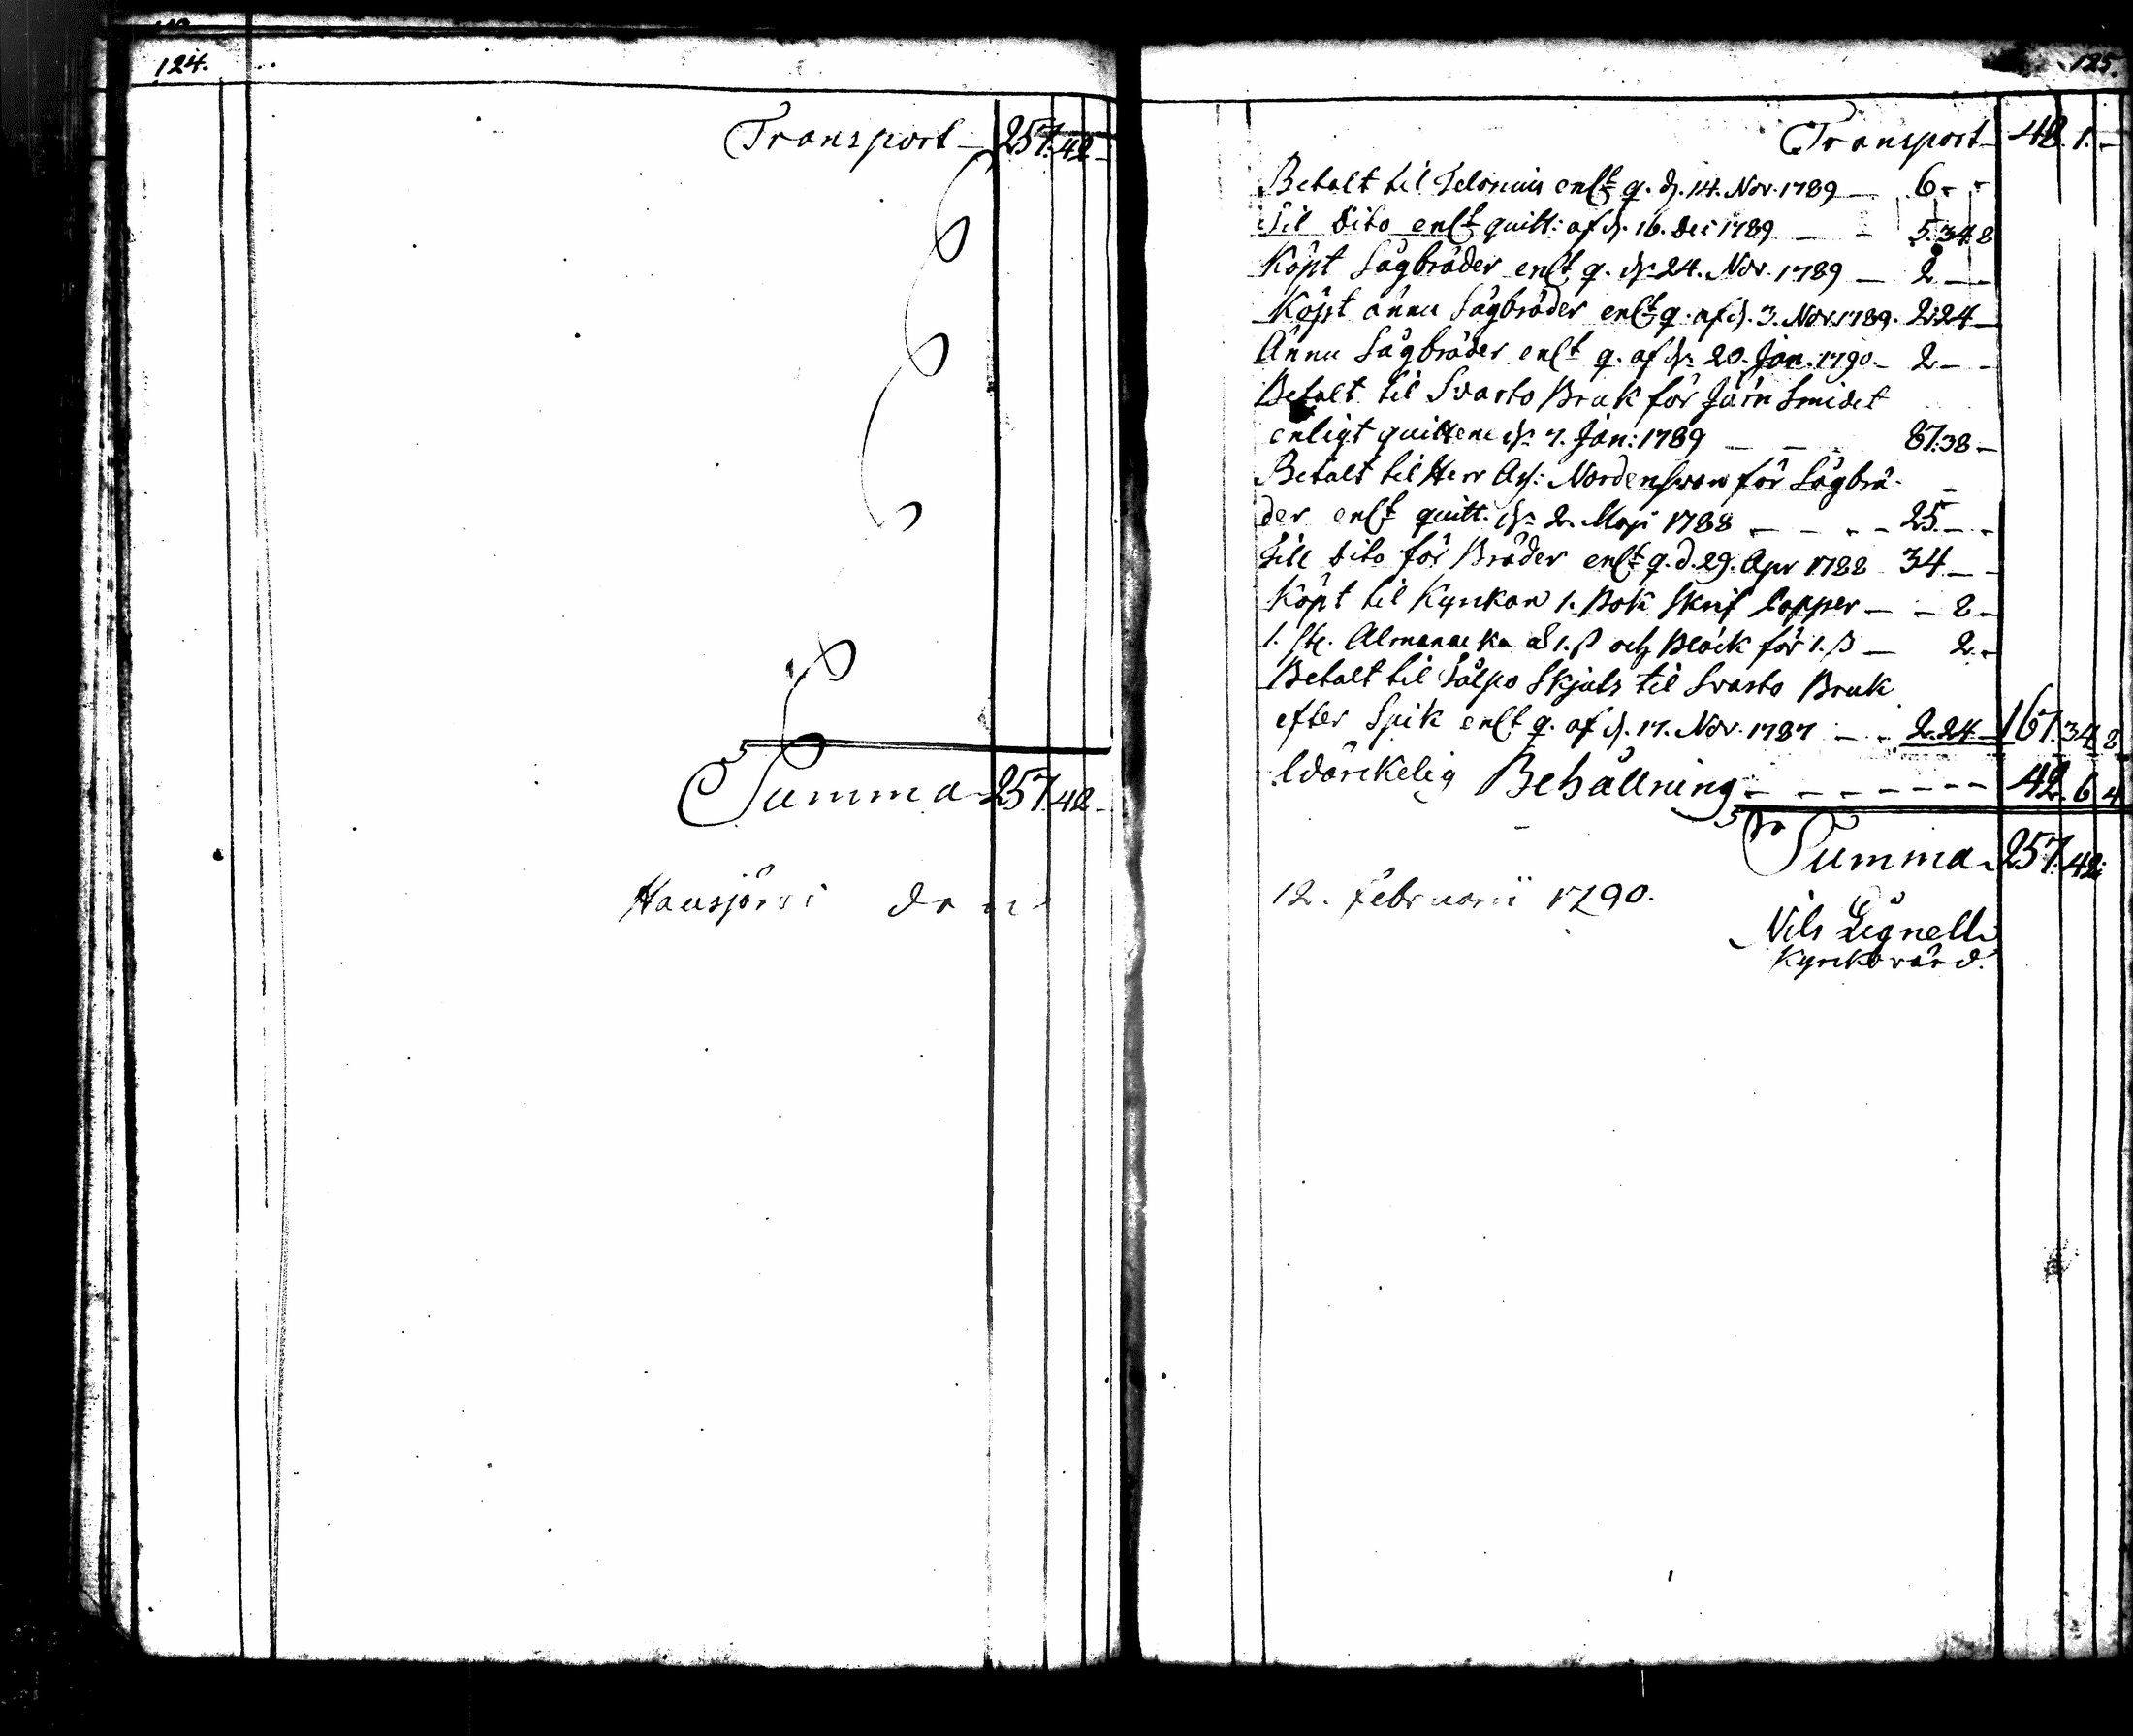 124.
Transport - 257. 42 -
Summa - 257. 42 -
Hausjärvi den
125.
Transport - 48. 1. -
Betalt til Selonius enl:t q. d. 14. Nov. 1789 — 6 - -
Til dito enl:t quitt: af d. 16. Dec 1789 — - 5. 34. 8
Köpt Sågbräder enl:t q. d. 24. Nov. 1789 — 2 — -
Köpt ännu Sågbräder enl:t q. af d. 3. Nov. 1789. 2. 24 —
Ännu Sågbräder enl:t q. af d. 20. Jan. 1790. - 2 - -
Betalt til Svarto Bruk för Järn Smidet
enligt quittence d. 7. Jan: 1789 — — - 87. 38 -
Betalt til Herr Nordenswan för Sågbrä-
der enl:t quitt. d. 2. Maji 1788 - - - - 25. - -
Till dito för Bräder enl:t q. d. 29. Apr 1788 34 - -
Köpt til Kyrkan 1. Bok Skrif - - 8 -
1. st. Almanacka á 1. ß och Bläck för 1. ß — 2. -
Betalt til Sälpo Skjuts til Svarto Bruk
efter Spik enl:t q. af d. 17. Nov. 1787 — - 2. 24 - 167. 34. 8
Wärckelig Behållning - - - - - - - 42. 6. 4
Summa - 257. 42:
12. Februarii 1790.
Nils Lignell
Kyrkovärd.